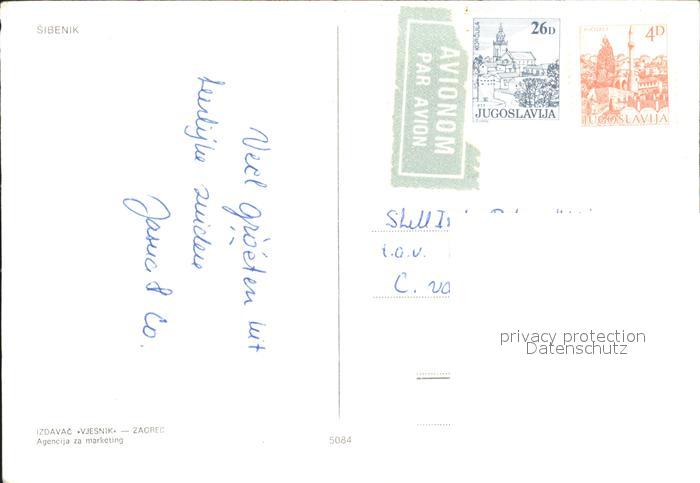 ŠIBENIK
AVIONOM
PAR AVION
KORČULA
26D
JUGOSLAVIJA
4D
JUGOSLAVIJA
Veel groeten uit
heerlijke zuiden
Jasna & Co.
Shell
t.a.v.
C. va
privacy protection
Datenschutz
IZDAVAČ »VJESNIK« — ZAGREB
Agencija za marketing
5084